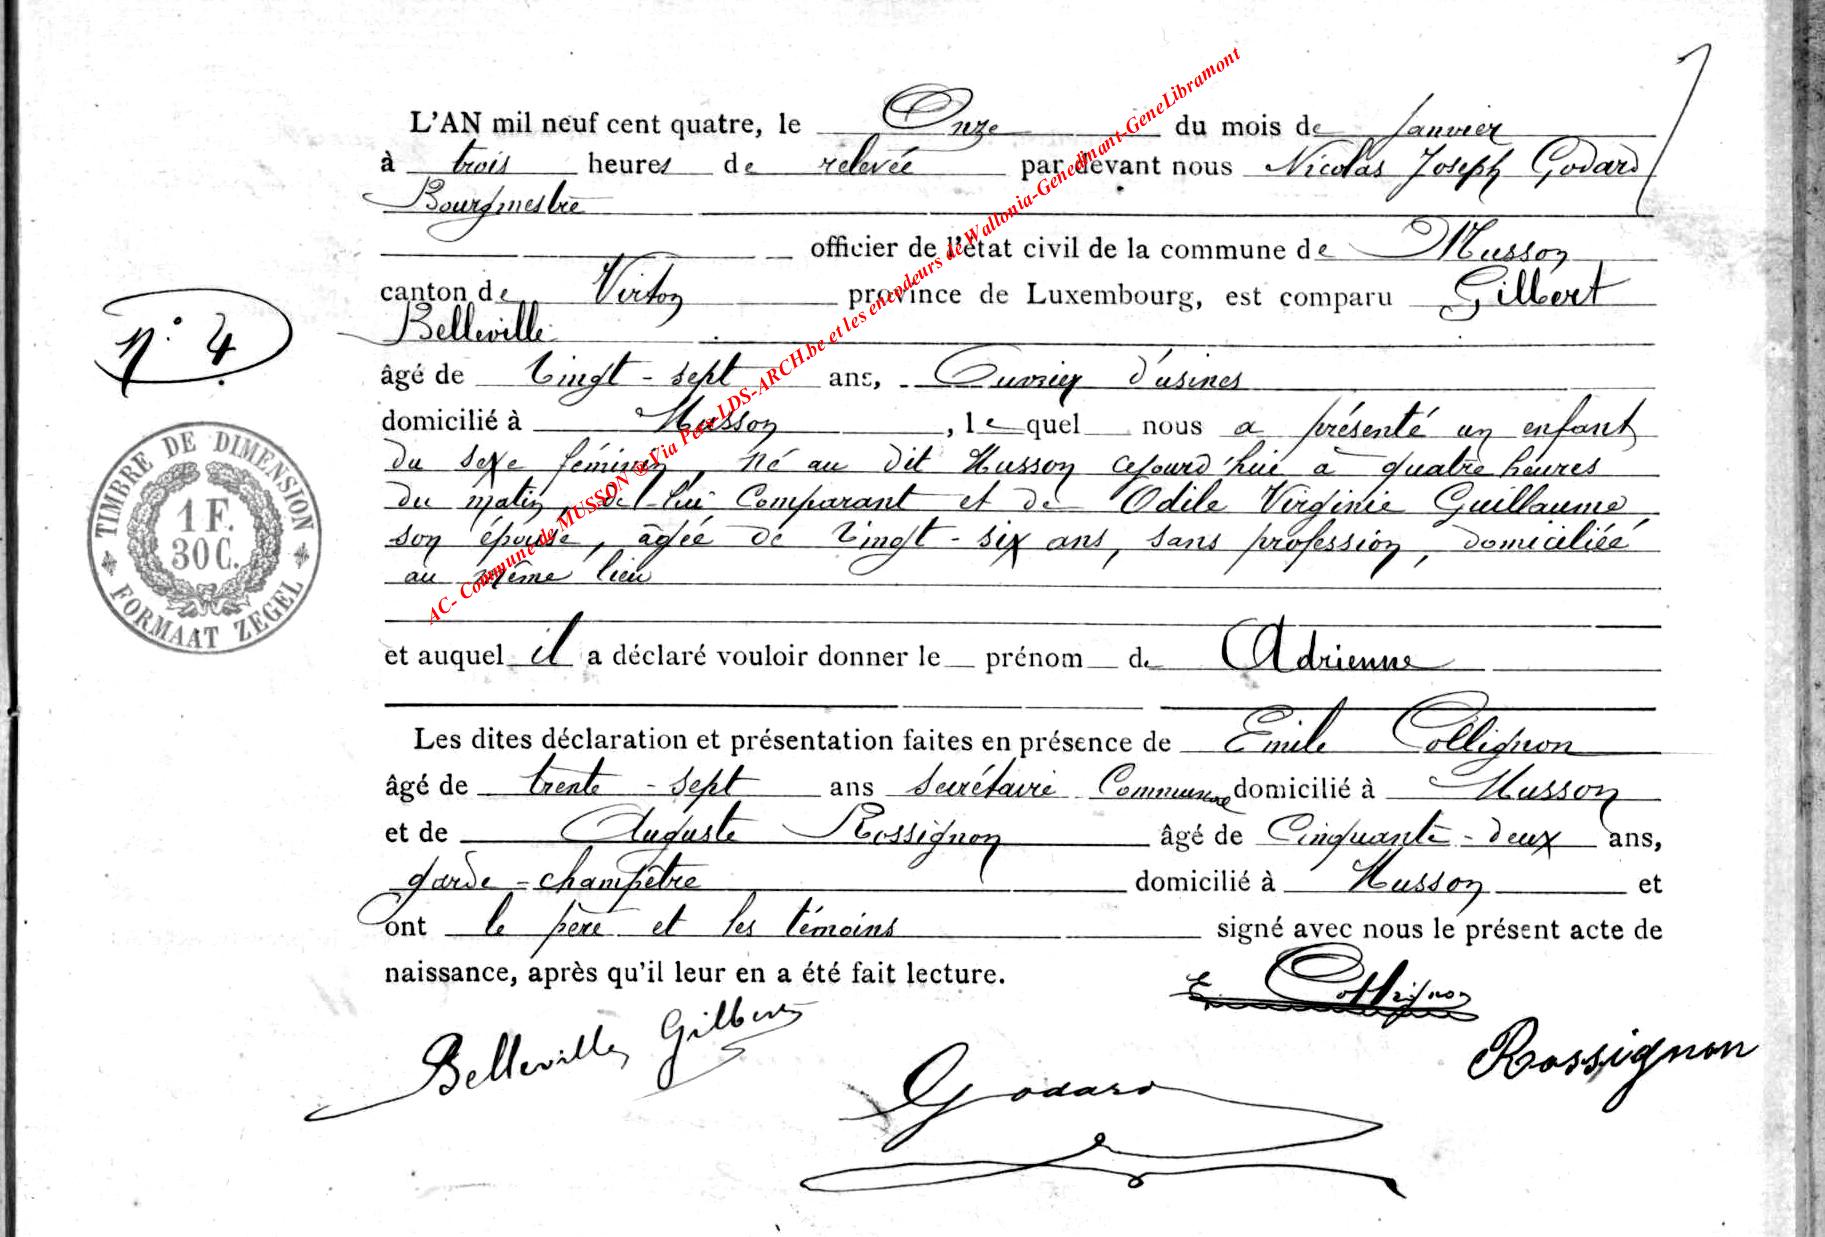 L'AN mil neuf cent quatre, le Onze du mois de Janvier
à trois heures de relevée par devant nous Nicolas Joseph Godard
Bourgmestre
officier de l'état civil de la commune de Musson
canton de Virton province de Luxembourg, est comparu Gilbert
Belleville
âgé de vingt-sept ans, Ouvrier d'usines
domicilié à Musson, lequel nous a présenté un enfant
du sexe féminin, né au dit Musson cejourd'hui à quatre heures
du matin, de lui Comparant et de Odile Virginie Guillaume,
son épouse, âgée de vingt-six ans, sans profession, domiciliée
au même lieu
et auquel il a déclaré vouloir donner le prénom de Adrienne
Les dites déclaration et présentation faites en présence de Emile Collignon
âgé de trente-sept ans Secrétaire Communal domicilié à Musson
et de Auguste Rossignon âgé de Cinquante-deux ans,
garde-champêtre domicilié à Musson et
ont le père et les témoins signé avec nous le présent acte de
naissance, après qu'il leur en a été fait lecture.
E. Collignon
Belleville Gilbert
Rossignon
Godard
N° 4
TIMBRE DE DIMENSION
1 F.
30 C.
FORMAAT ZEGEL
AC- Commune de MUSSON ® Via Pers-LDS-ARCH.be et les encodeurs de Wallonia-Genedinant-GeneLibramont